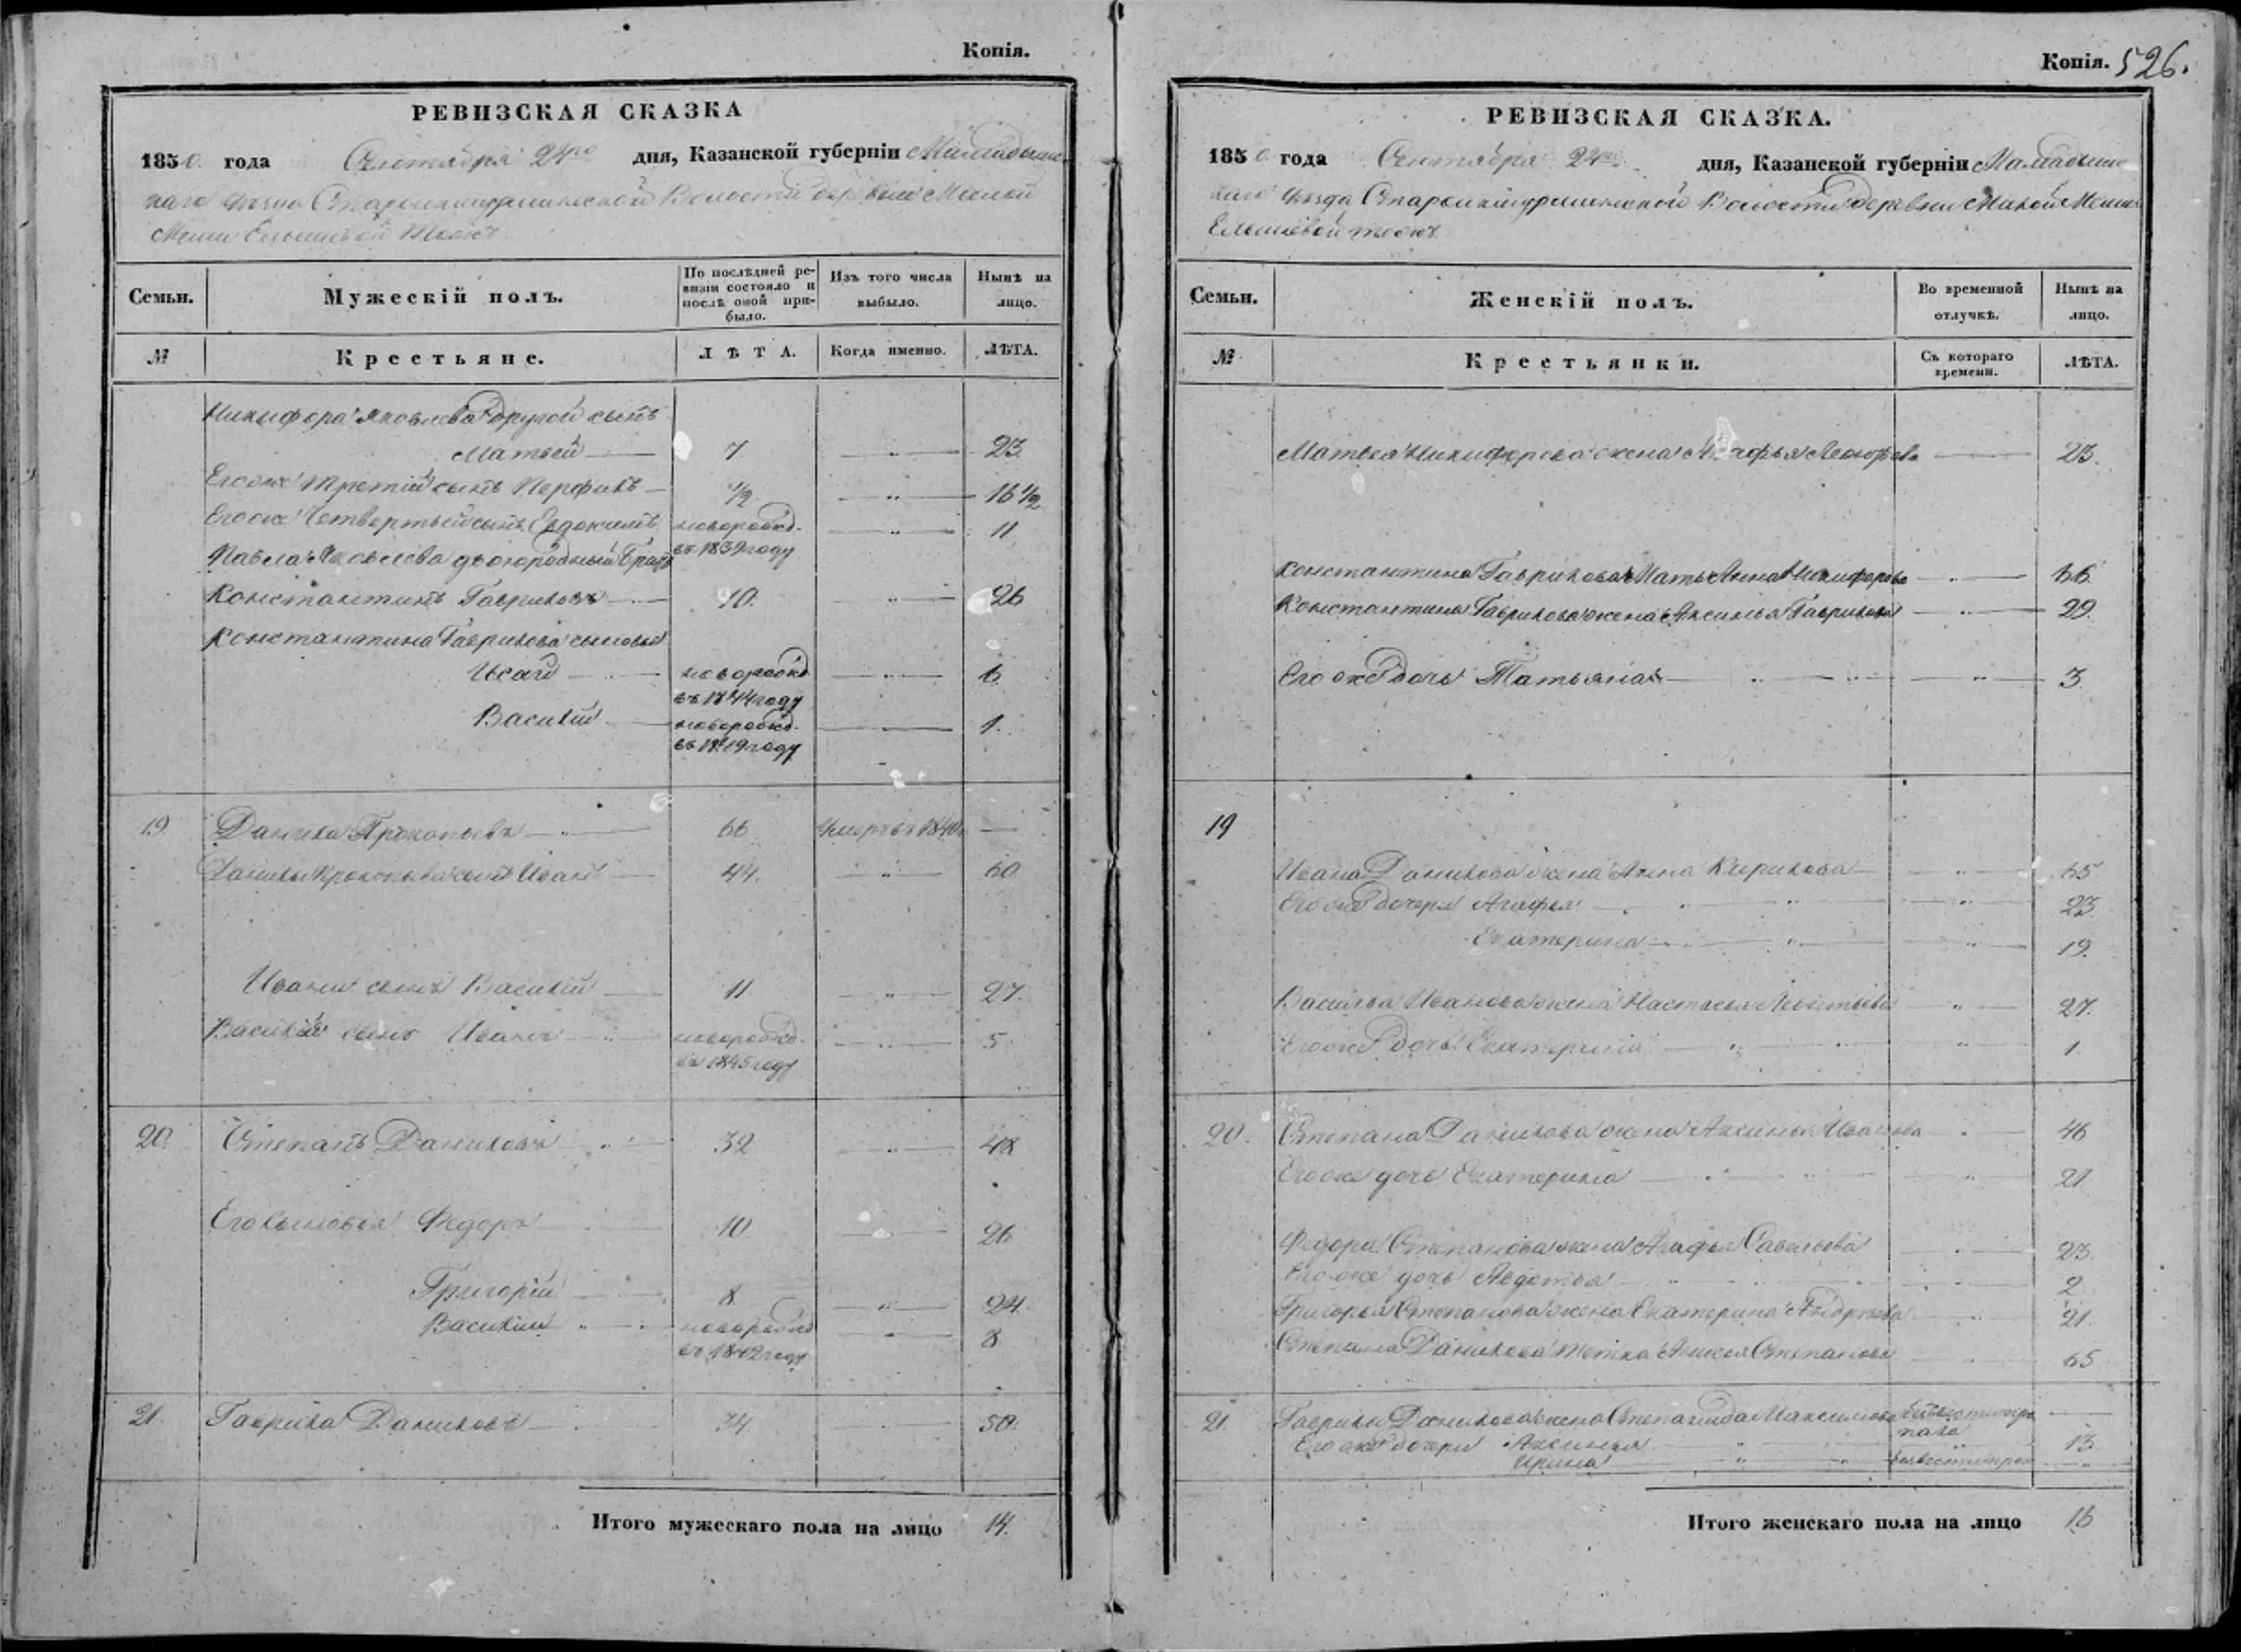 Копія.
РЕВИЗСКАЯ СКАЗКА
1850 года Сентября 24го дня, Казанской губерніи Мамадыш
скаго уѣзда Волости деревни Малой
Меши Елышевой тожъ
Семьи.
Мужескій полъ.
По послѣдней ре-
визіи состояло и
послѣ оной при-
было.
Изъ того числа
выбыло.
Нынѣ на
лицо.
№
Крестьяне.
ЛѢТА.
Когда именно.
ЛѢТА.
Никифора Яковлева другой сынъ
Матвей 7 23
Егоже третій сынъ Перфилъ 1/2 16 1/2
Егоже Четвертый сынъ Евдокимъ новорожд. въ 1839 году 11
Павла Яковлева двоюродный братъ
Константинъ Гавриловъ 10. 26
Константина Гаврилова сыновья
Исай новорожд въ 1844 году 6
Василій новорожд. въ 1849 году 1.
19 Данила Прокопьевъ 66 умеръ въ 1840
Данилы Прокопьева сынъ Иванъ 44. 60
Ивана сынъ Василій 11 27.
Василія сынъ Иванъ новорожд. въ 1845 году 5
20 Степанъ Даниловъ 32 48
Его сыновья Федоръ 10 26
Григорій 8 24.
Василій новорожд въ 1842 году 8
21. Гаврила Даниловъ 34 50.
Итого мужескаго пола на лицо 14.
Копія. 526.
РЕВИЗСКАЯ СКАЗКА.
1850 года Сентября 24го дня, Казанской губерніи Мамадыш
скаго уѣзда Волости деревни Малой Меши
Елышевой тожъ
Семьи.
Женскій полъ.
Во временной
отлучкѣ.
Нынѣ на
лицо.
№
Крестьянки.
Съ котораго
времени.
ЛѢТА.
Матвея Никифорова жена 23.
Константина Гаврилова Мать Анна Никифорова 66
Константина Гаврилова жена Аксинья Гаврилова 29.
Его же дочь Татьяна 3
19
Ивана Данилова жена Анна Кирилова 65
Егоже дочери Агафья 23
Екатерина 19.
Василья Иванова жена Настасья 27.
Егоже дочь Екатерина 1.
20. Степана Данилова жена Аксинья Иванова 46
Егоже дочь Екатерина 21
Федора Степанова жена Агафья Савельева 23.
Егоже дочь Авдотья 2
Григорья Степанова жена Екатерина Андреева 21.
Степана Данилова тетка Степанова 65
21. Гаврилы Данилова жена Степанида Максимова безвестно пропала
Егоже дочери Аксинья 13
Ирина безвестно проп
Итого женскаго пола на лицо 16